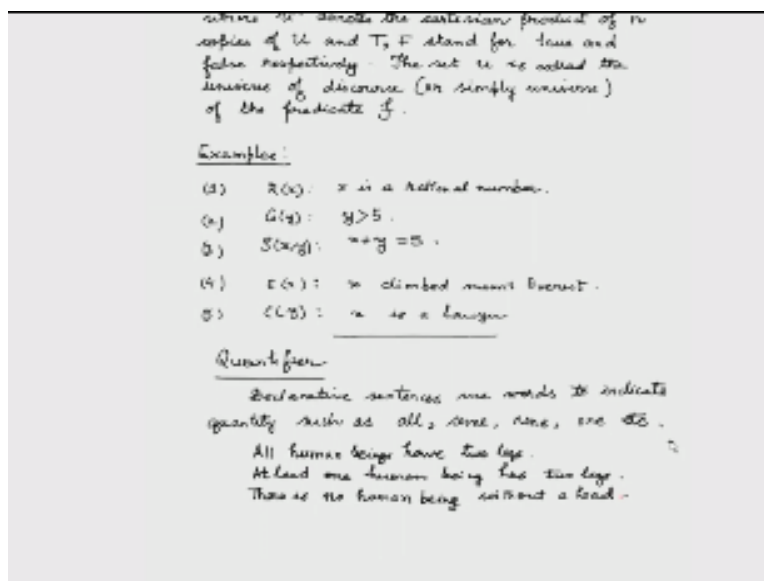 where Uⁿ denotes the cartesian product of n
copies of U and T, F stand for true and
false respectively. The set U is called the
universe of discourse (or simply universe)
of the predicate f.
Examples:
(1) R(x): x is a rational number.
(2) G(y): y>5.
(3) S(x,y): x+y=5.
(4) E(x): x climbed mount Everest.
(5) x is a lawyer
Quantifier
Declarative sentences use words to indicate
quantity such as all, some, none, one etc.
All human beings have two legs.
At least one human being has two legs.
There is no human being without a head.